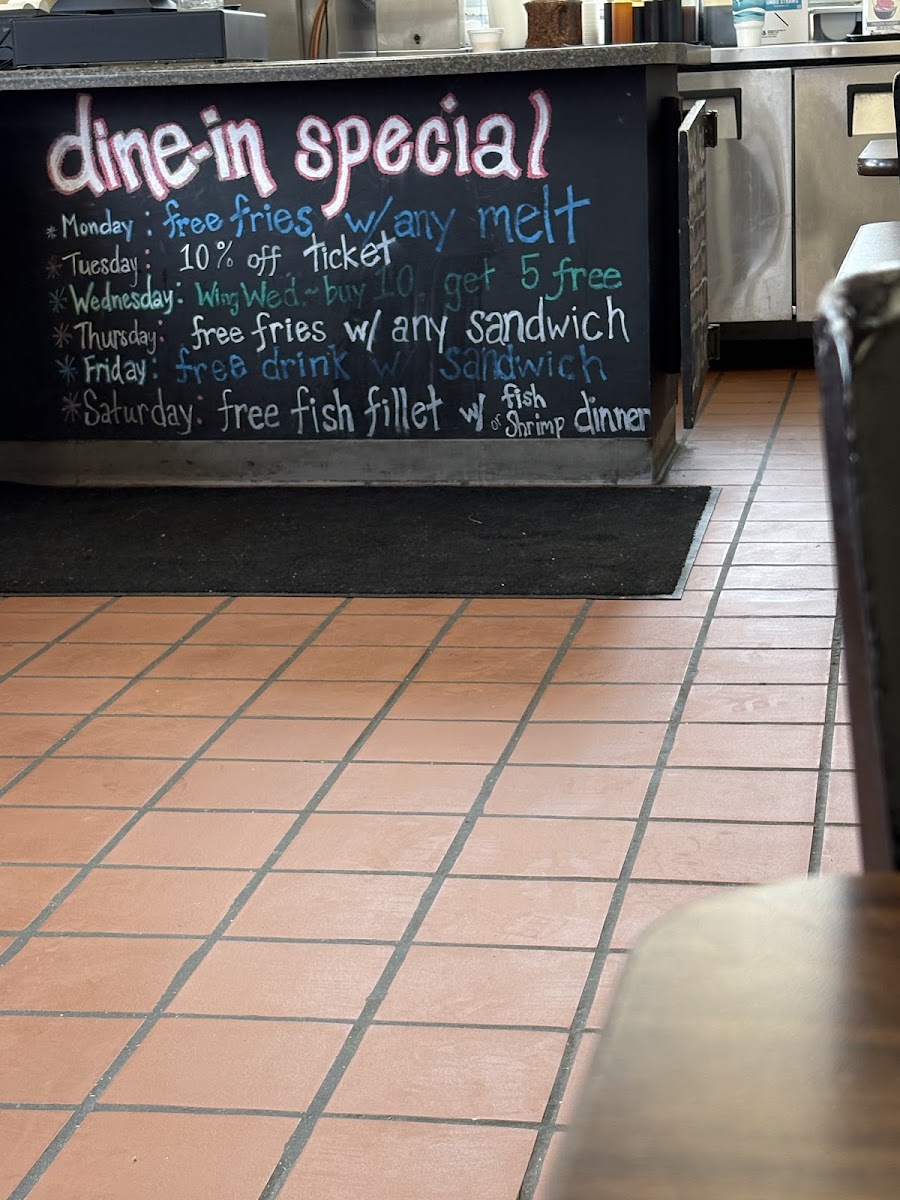 dine-in special
* Monday : free fries w/ any melt
* Tuesday: 10% off ticket
* Wednesday: Wing Wed. ~ buy 10 get 5 free
* Thursday: free fries w/ any sandwich
* Friday: free drink w/ sandwich
* Saturday: free fish fillet w/ fish or Shrimp dinner